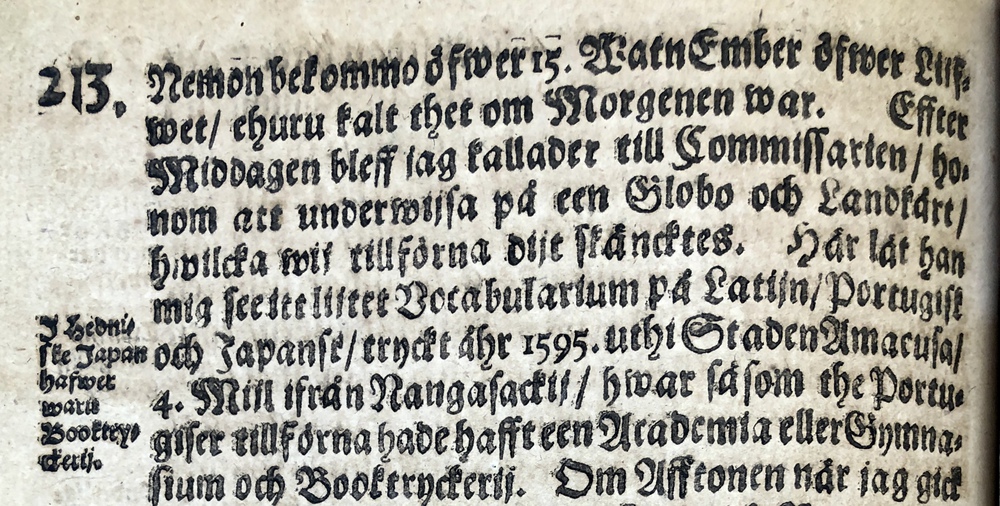 213.
Nemon bekommo öfwer 15. Watn Ember öfwer Lijf-
wet/ ehuru kalt thet om Morgenen war. Effter
Middagen bleff jag kallader till Commissarien/ ho-
nom att underwijsa på een Globo och Landkårt/
hwilcka wij tillförna dijt skäncktes. Här lät han
mig see itt lijtet Vocabularium på Latijn/ Portugisk
och Japansk/ tryckt åhr 1595. uthi Staden Amacusa/
4. Mijl ifrån Nangasackij/ hwar såsom the Portu-
giser tillförna hade hafft een Academia eller Gymna-
sium och Booktryckerij. Om Afftonen när jag gick
I Hedni-
ske Japan
hafwer
warit
Booktry-
ckerij.